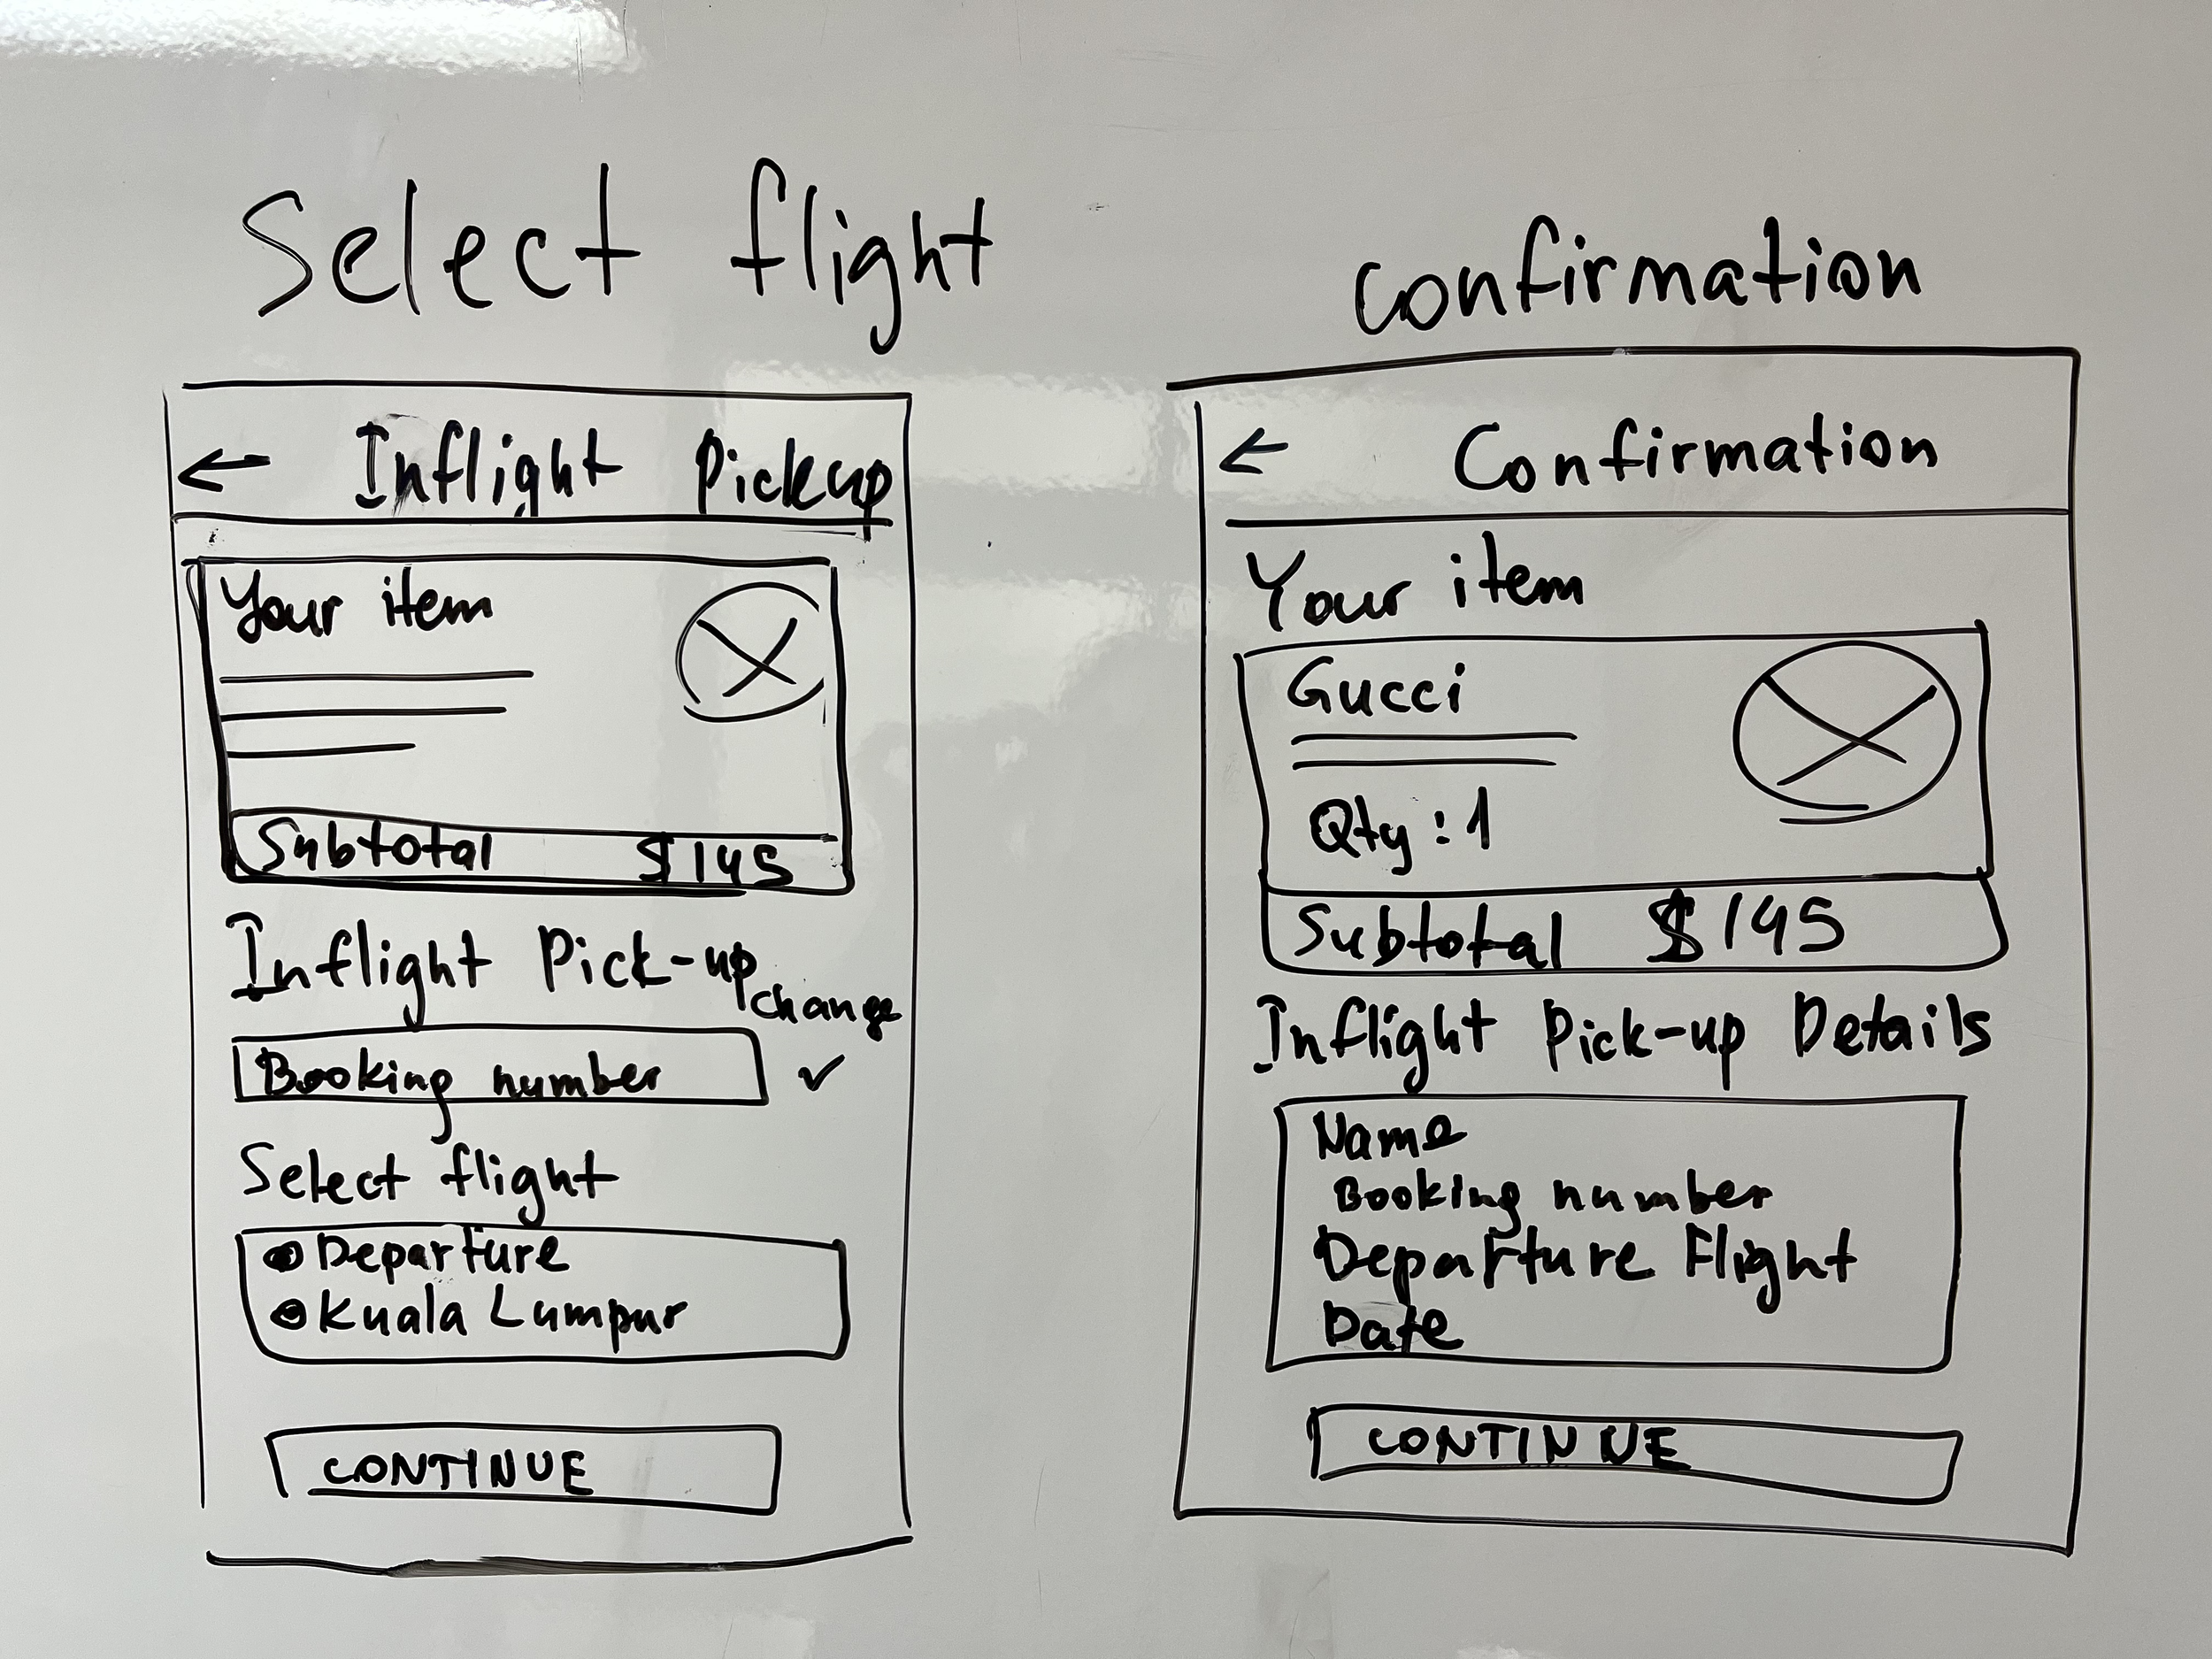 Select flight
← Inflight Pickup
Your item
Subtotal $145
Inflight Pick-up
change
Booking number ✓
Select flight
Departure
Kuala Lumpur
CONTINUE
Confirmation
← Confirmation
Your item
Gucci
Qty : 1
Subtotal $145
Inflight Pick-up Details
Name
Booking number
Departure Flight
Date
CONTINUE